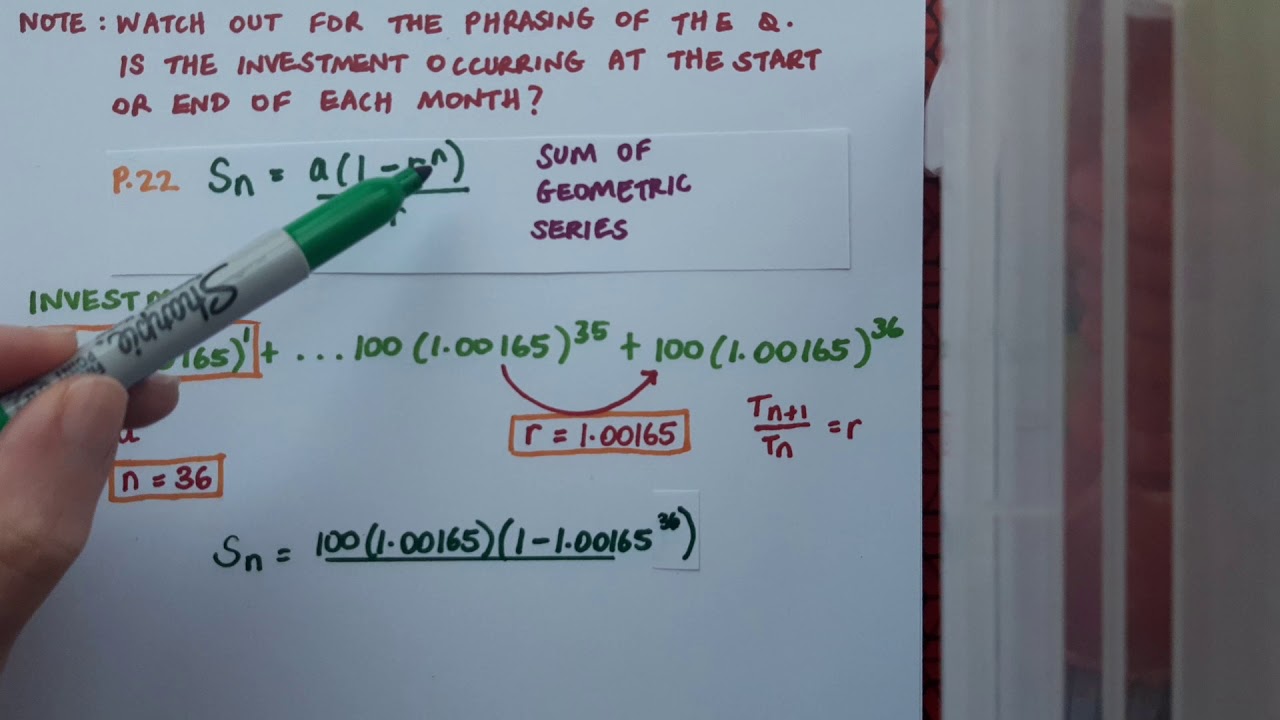 NOTE: WATCH OUT FOR THE PHRASING OF THE Q.
IS THE INVESTMENT OCCURRING AT THE START
OR END OF EACH MONTH?
P.22 Sn = a(1 - rⁿ)
SUM OF
GEOMETRIC
SERIES
Sharpie
165)¹ + ... 100(1.00165)³⁵ + 100(1.00165)³⁶
a
r = 1.00165
Tn+1/Tn = r
n = 36
Sn = 100(1.00165)(1-1.00165³⁶)